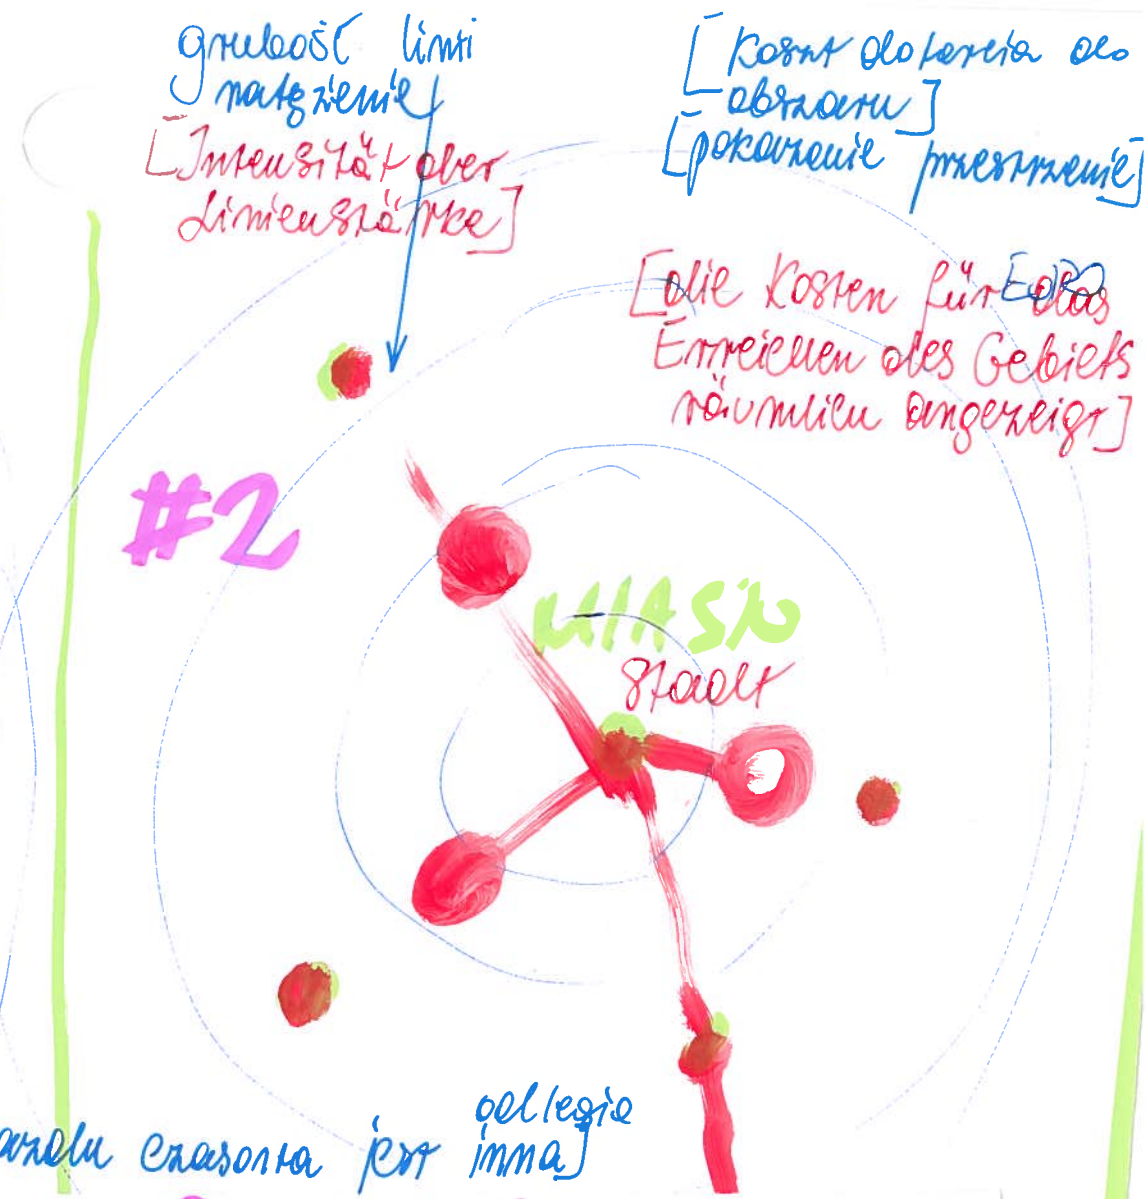 grubość linii
natężenie
[Intensität über
Linienstärke]
[Koszt dotarcia do
obszaru]
[pokazanie przestrzenie]
[die Kosten für das
Erreichen des Gebiets
räumlich angezeigt]
#2
MIASTO
Stadt
odległa
czasowa jest inna]